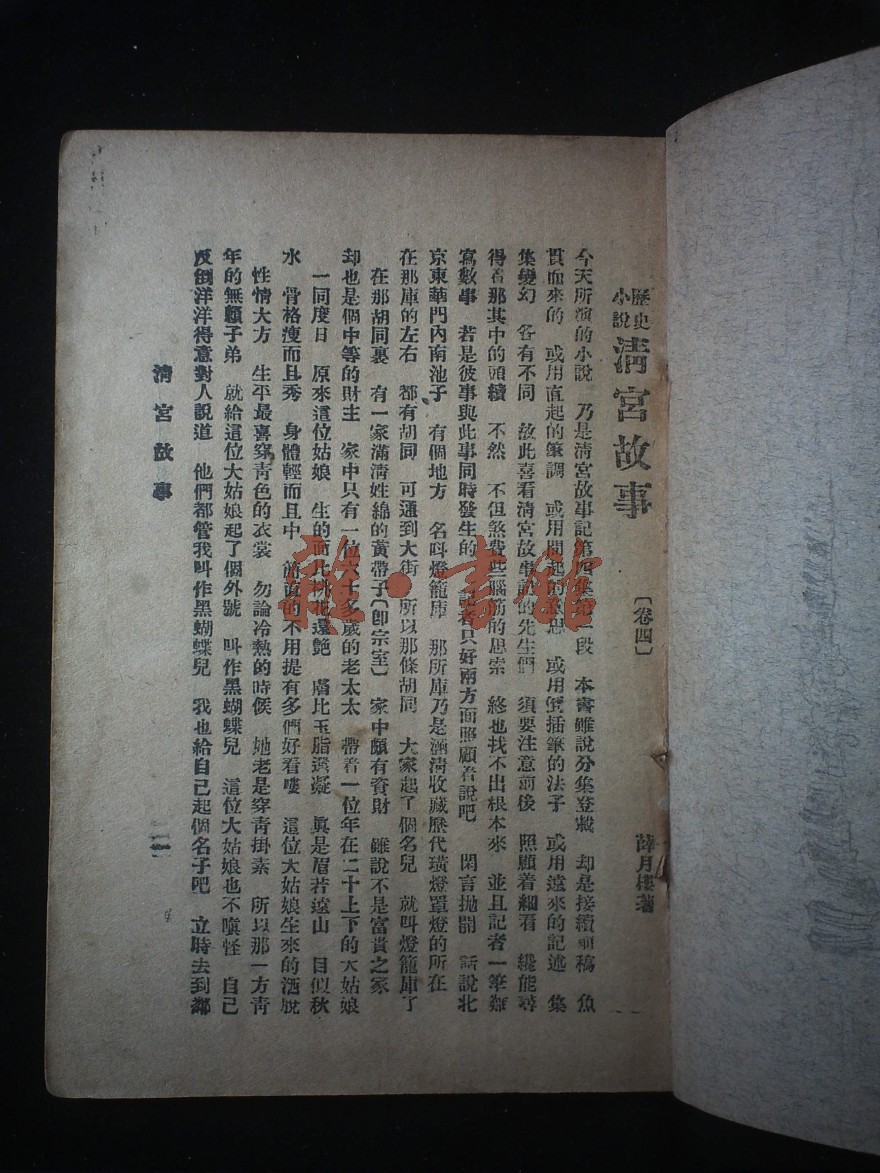 歷史小說 清宮故事 〔卷四〕 薛月樓著
今天所演的小說 乃是清宮故事記第四集第一段 本書雖說分集登載 却是接續前稿 魚
貫而來的 或用直起的筆調 或用間起的意思 或用倒插筆的法子 或用遠來的記述 集
集變幻 各有不同 故此喜看清宮故事記的先生們 須要注意前後 照顧着細看 纔能尋
得着那其中的頭緒 不然 不但煞費些腦筋的思索 終也找不出根本來 並且記者一筆難
寫數事 若是彼事與此事同時發生的 記者只好兩方面照顧着說吧 閑言拋開 話說北
京東華門內南池子 有個地方 名叫燈籠庫 那所庫乃是滿清收藏歷代璜燈罩燈的所在
在那庫的左右 都有胡同 可通到大街 所以那條胡同 大家起了個名兒 就叫燈籠庫了
在那胡同裏 有一家滿清姓綿的黃帶子〔卽宗室〕 家中頗有資財 雖說不是富貴之家
却也是個中等的財主 家中只有一位六十多歲的老太太 帶着一位年在二十上下的大姑娘
一同度日 原來這位姑娘 生的面比桃花還艷 膚比玉脂還凝 眞是眉若遠山 目似秋
水 骨格瘦而且秀 身體輕而且中 簡直的不用提有多們好看嘍 這位大姑娘生來的洒脫
性情大方 生平最喜穿靑色的衣裳 勿論冷熱的時候 她老是穿靑掛素 所以那一方靑
年的無賴子弟 就給這位大姑娘起了個外號 叫作黑蝴蝶兒 這位大姑娘也不嗔怪 自己
反倒洋洋得意對人說道 他們都管我叫作黑蝴蝶兒 我也給自己起個名子吧 立時去到鄰
清宮故事
一
雜·書館